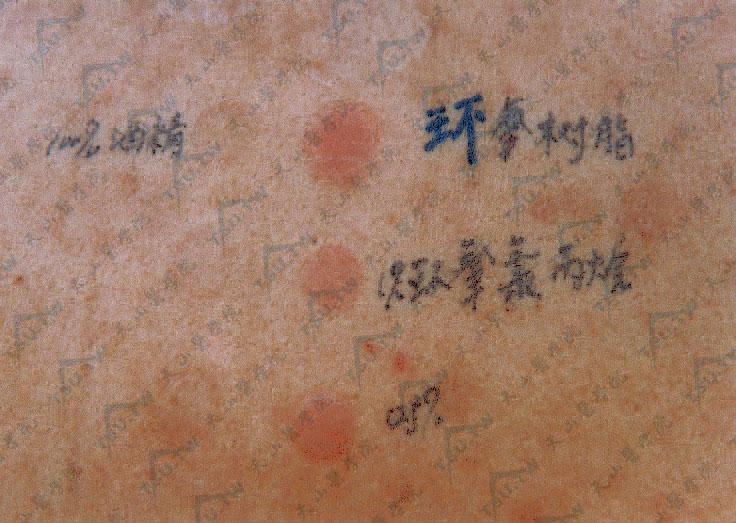 100% 酒精 环氧树脂
1%环氧氯丙烷
0.5%